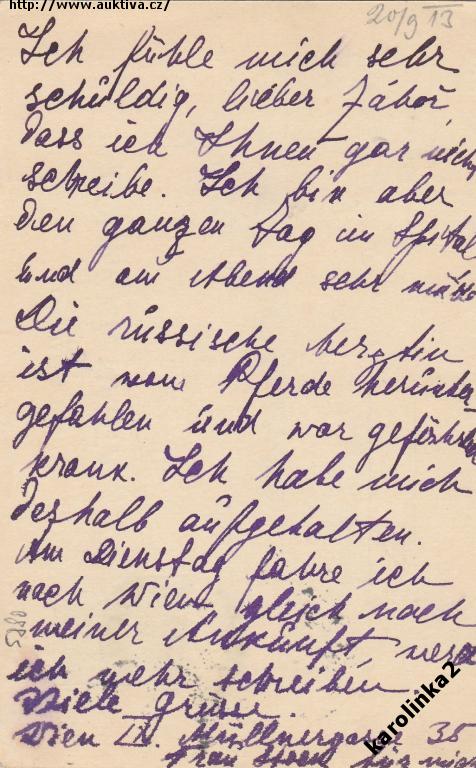 http://www.auktiva.cz/
20/9 13
Ich fühle mich sehr
schuldig, lieber Záboř,
dass ich Ihnen gar nicht
schreibe. Ich bin aber
den ganzen Tag im Spital
und am Abend sehr müde
Die russische Aerztin
ist vom Pferde herunter
gefahlen und war gefährlich
krank. Ich habe mich
deshalb aufgehalten.
Am Dienstag fahre ich
nach Wien gleich nach
meiner Ankunft, werde
ich mehr schreiben
Viele Grüsse.
Wien IX. Müllnergasse 35
Frau für mich
karolinka2